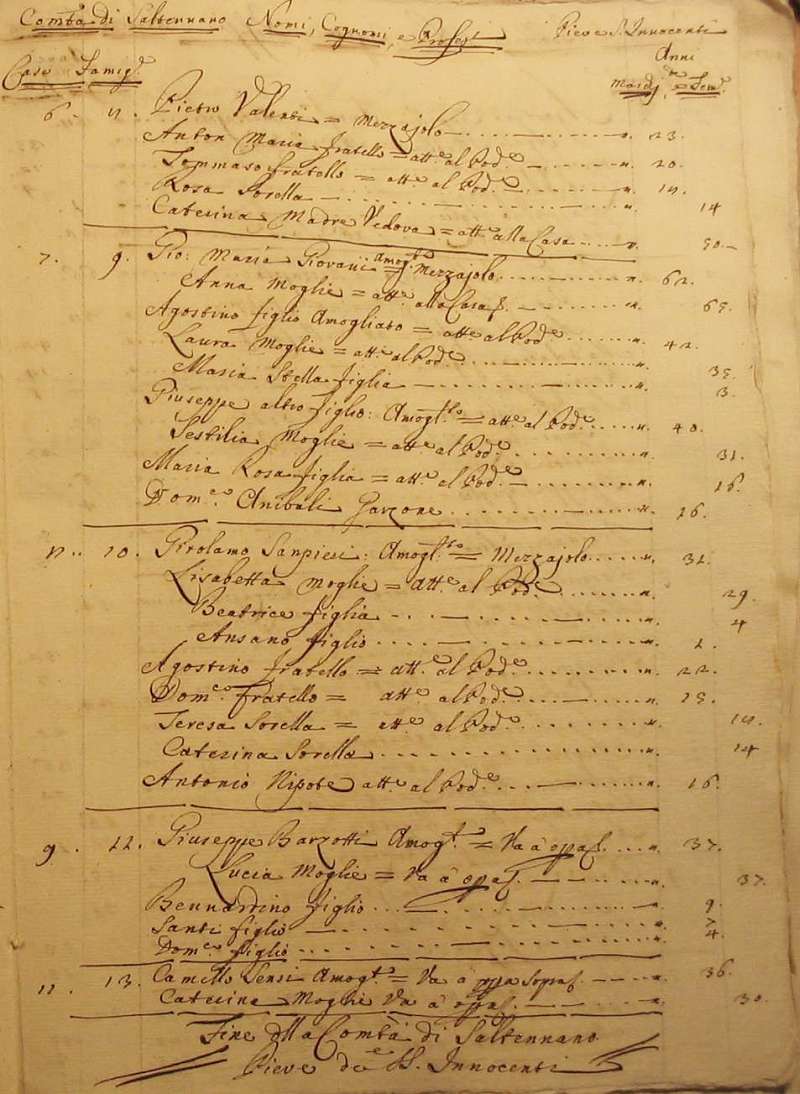 Comtà di Saltennano Nomi, Cognomi, e Profess.i Pieve S. Innocenti
Anni
Case Famig.e Maschj, e Fem.e
6. Pietro Valenti = Mezzajolo 23.
Anton Maria fratello = att.e al Pod.e 20.
Tommaso fratello = att.e al Pod.e
Rosa Sorella 14
Caterina Madre Vedova = att.e alla Casa 50
7. 9. Gio: Maria Giovani Amog.to = Mezzajolo 62.
Anna Moglie = att.e alla Casa 65.
Agostino figlio Amogliato = att.e al Pod.e 42.
Laura Moglie = att.e al Pod.e 35.
Maria Stella figlia 3.
Giuseppe altro figlio: Amog.to = att.e al Pod.e 40.
Sestilia Moglie = att.e al Pod.e 31.
Maria Rosa figlia = att.e al Pod.e 16.
Dom.co Anibali Garzone 16.
10. Girolamo Sanpieri: Amog.to = Mezzajolo 32.
Lisabetta Moglie = att.e al Pod.e 29.
Beatrice figlia 4
Ansano figlio 2.
Agostino fratello = att.e al Pod.e 22.
Dom.co fratello = att.e al Pod.e 15.
Teresa Sorella = att.e al Pod.e
Caterina Sorella 14
Antonio Nipote att.e al Pod.e 16.
9. 12. Giuseppe Barzotti Amog.to = Va à opra 37.
Lucia Moglie = Va à opra 37.
Bernardino figlio 9.
Santi figlio 7
Dom.co figlio 4.
11. 13. Camillo Sensi Amog.to = Va à opra 36.
Caterina Moglie Va à opra 30.
Fine della Comtà di Saltennano
Pieve de SS. Innocenti